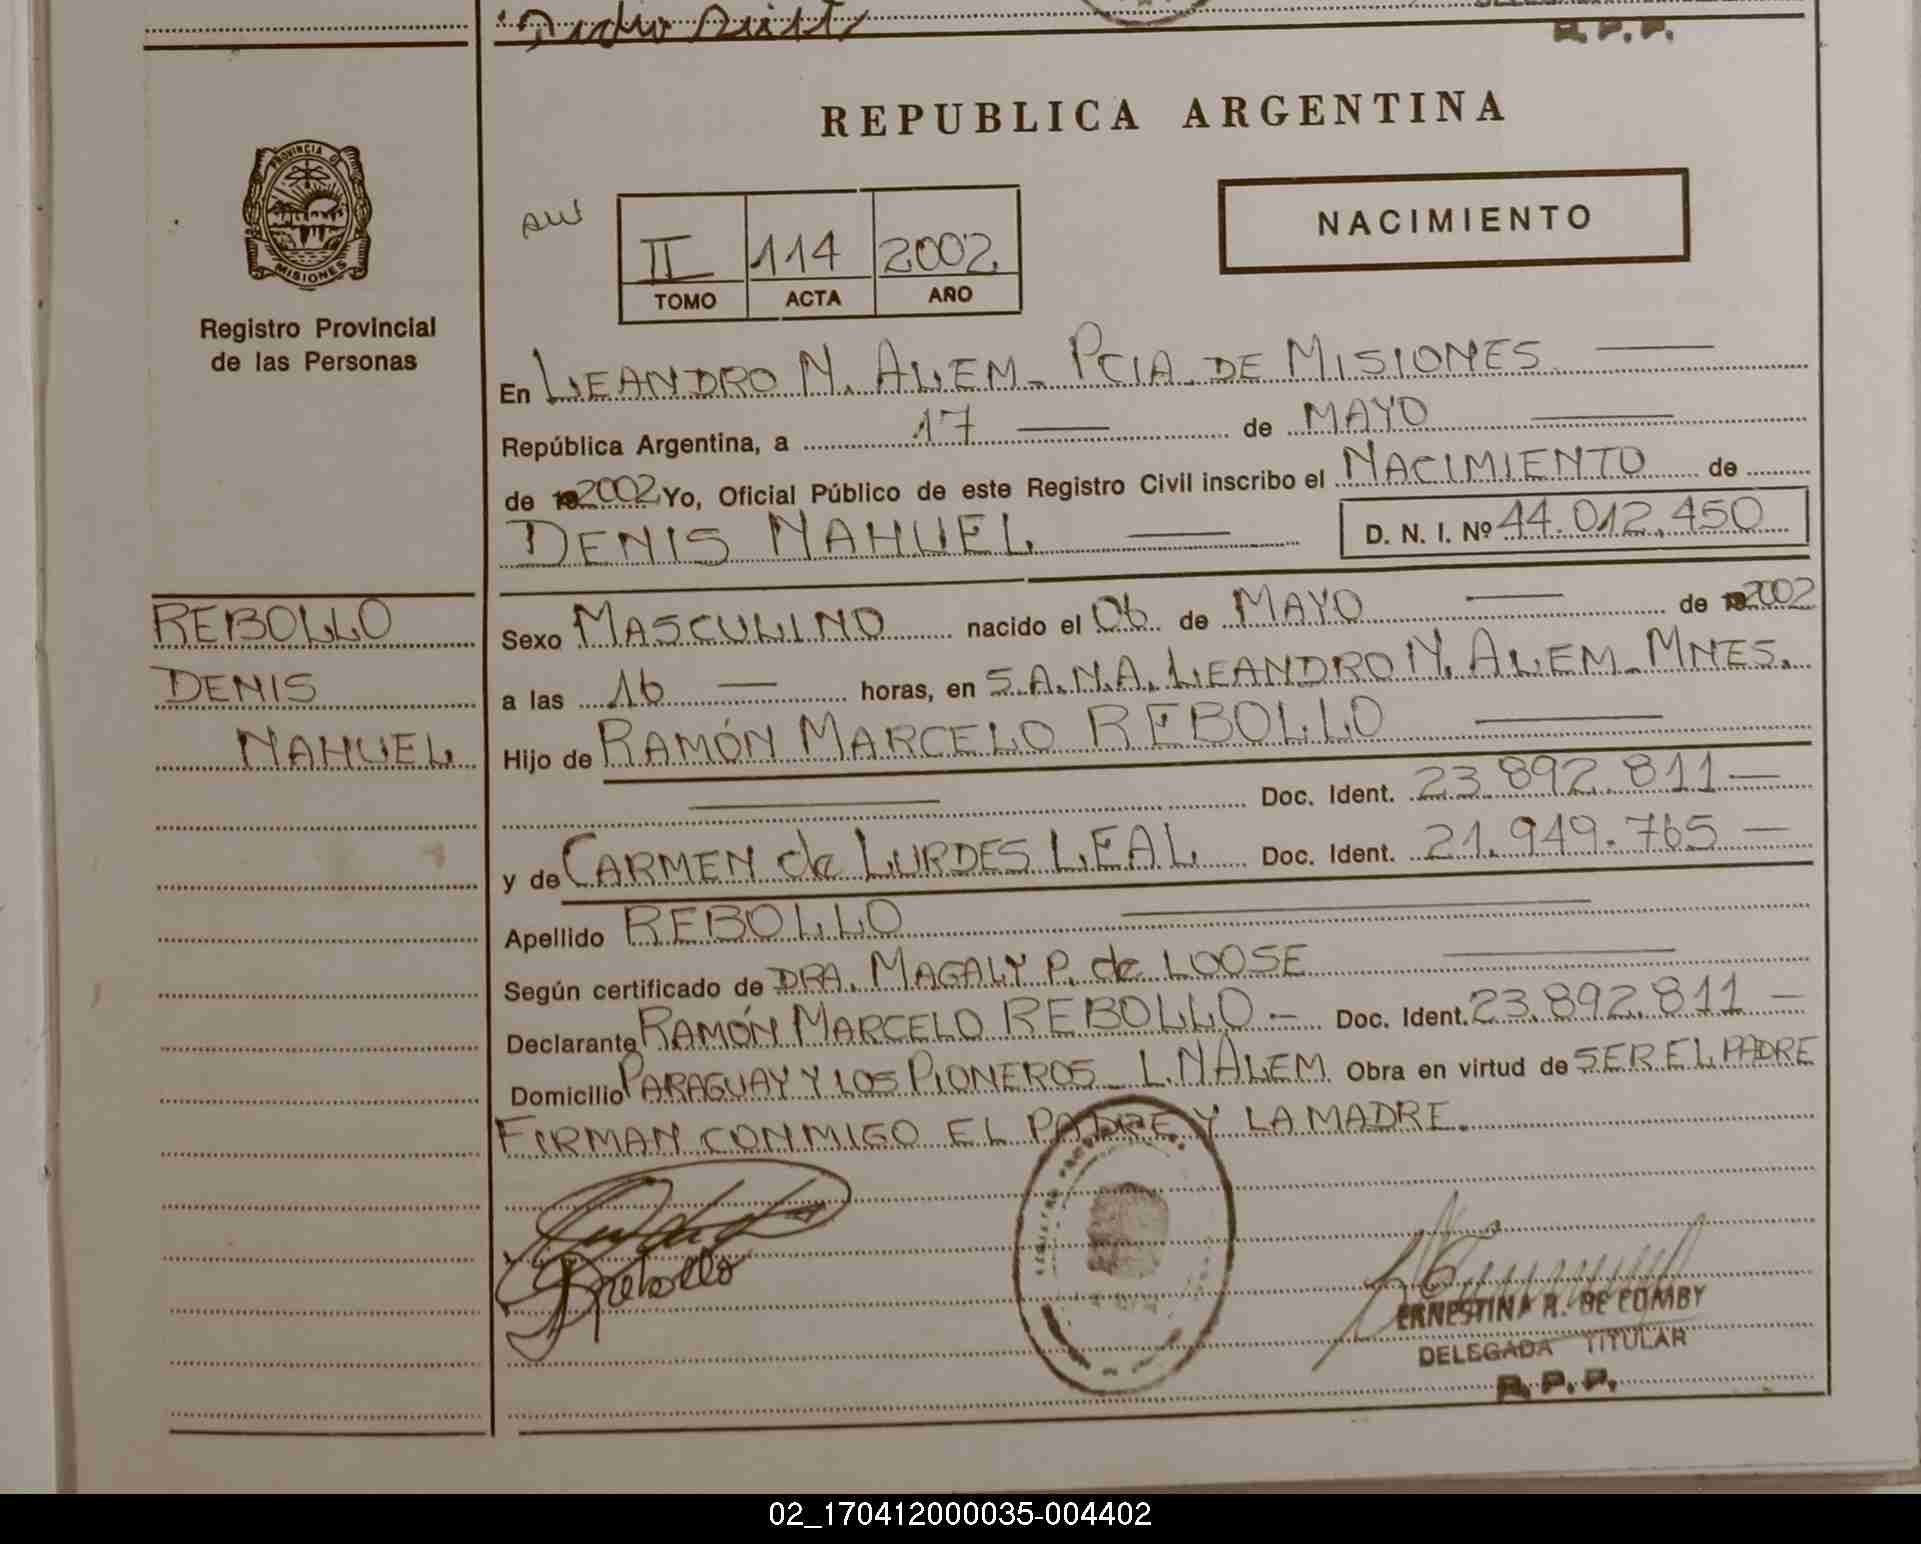 R.P.P.
REPUBLICA ARGENTINA
PROVINCIA DE
MISIONES
Registro Provincial
de las Personas
NACIMIENTO
II 114 2002
TOMO ACTA AÑO
En LEANDRO N. ALEM - PCIA. DE MISIONES
República Argentina, a 17 de MAYO
de 2002 Yo, Oficial Público de este Registro Civil inscribo el NACIMIENTO de
DENIS NAHUEL D. N. I. Nº 44.012.450
REBOLLO
DENIS
NAHUEL
Sexo MASCULINO nacido el 06 de MAYO de 2002
a las 16 horas, en S.A.N.A. LEANDRO N. ALEM - MNES.
Hijo de RAMÓN MARCELO REBOLLO
Doc. Ident. 23.892.811
y de CARMEN de LURDES LEAL Doc. Ident. 21.949.765
Apellido REBOLLO
Según certificado de DRA. MAGALY P. de LOOSE
Declarante RAMÓN MARCELO REBOLLO - Doc. Ident. 23.892.811
Domicilio PARAGUAY Y LOS PIONEROS - L.N ALEM Obra en virtud de SER EL PADRE
FIRMAN CONMIGO EL PADRE Y LA MADRE.
Rebollo
ERNESTINA R. DE COMBY
DELEGADA TITULAR
R.P.P.
02_170412000035-004402